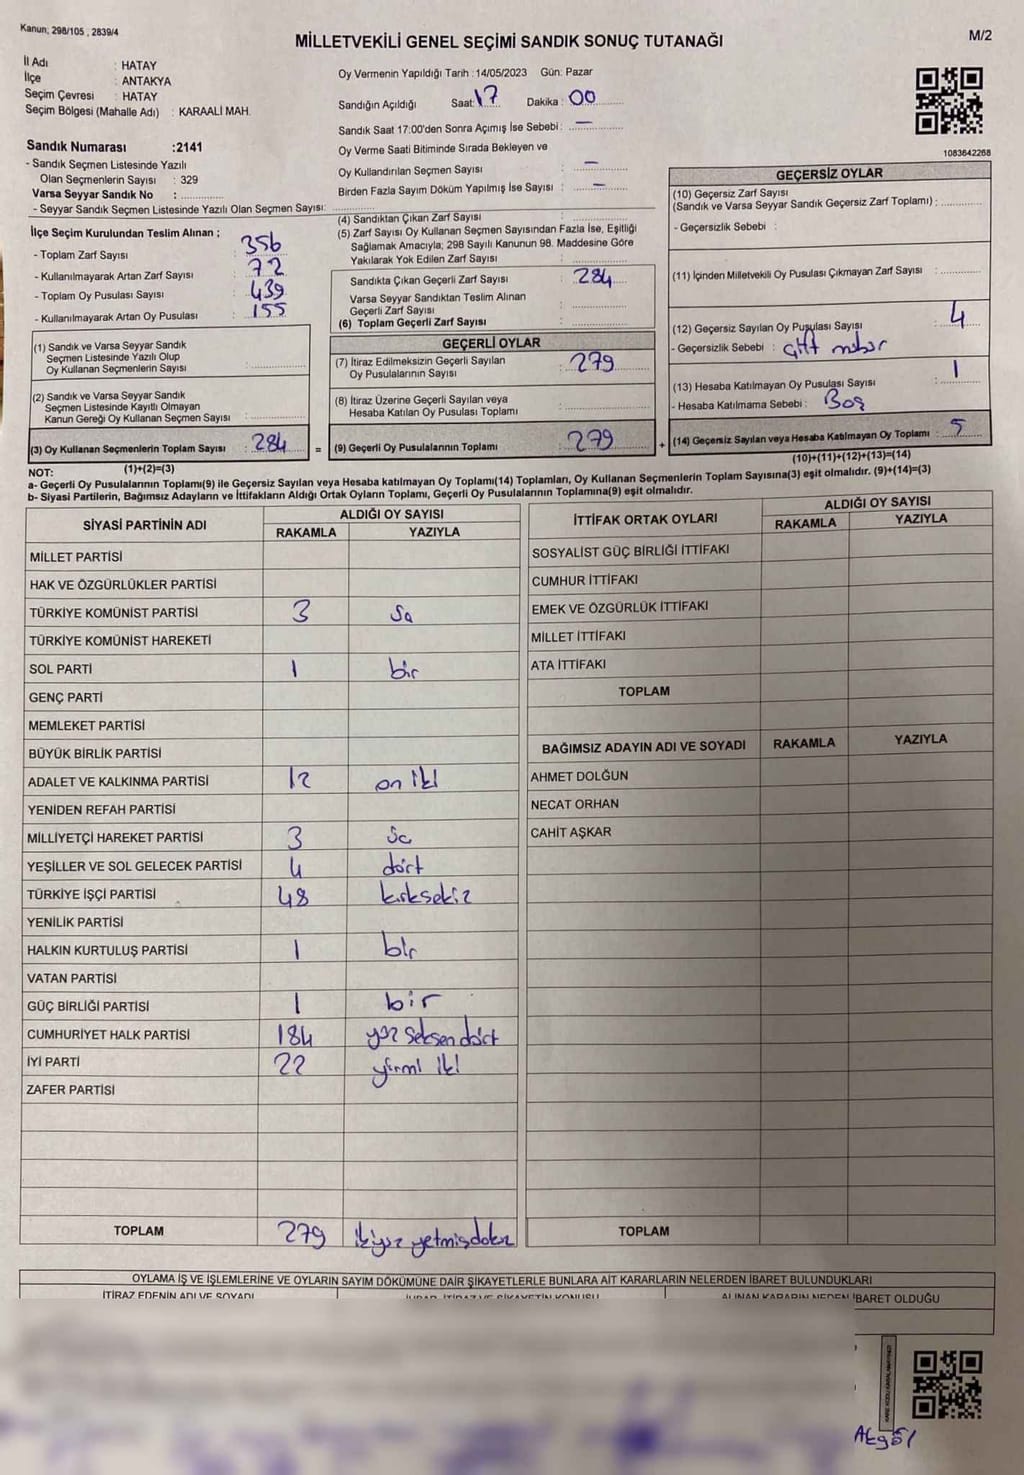 Kanun; 298/105 , 2839/4
MİLLETVEKİLİ GENEL SEÇİMİ SANDIK SONUÇ TUTANAĞI
M/2
İl Adı : HATAY
İlçe : ANTAKYA
Seçim Çevresi : HATAY
Seçim Bölgesi (Mahalle Adı) : KARAALİ MAH.
Sandık Numarası :2141
- Sandık Seçmen Listesinde Yazılı
Olan Seçmenlerin Sayısı : 329
Varsa Seyyar Sandık No :
- Seyyar Sandık Seçmen Listesinde Yazılı Olan Seçmen Sayısı:
Oy Vermenin Yapıldığı Tarih :14/05/2023 Gün: Pazar
Sandığın Açıldığı Saat: 17 Dakika : 00
Sandık Saat 17:00'den Sonra Açımış İse Sebebi : —
Oy Verme Saati Bitiminde Sırada Bekleyen ve
Oy Kullandırılan Seçmen Sayısı : —
Birden Fazla Sayım Döküm Yapılmış İse Sayısı : —
1083642268
İlçe Seçim Kurulundan Teslim Alınan ;
- Toplam Zarf Sayısı : 356
- Kullanılmayarak Artan Zarf Sayısı : 72
- Toplam Oy Pusulası Sayısı : 439
- Kullanılmayarak Artan Oy Pusulası : 155
(1) Sandık ve Varsa Seyyar Sandık
Seçmen Listesinde Yazılı Olup
Oy Kullanan Seçmenlerin Sayısı :
(2) Sandık ve Varsa Seyyar Sandık
Seçmen Listesinde Kayıtlı Olmayan
Kanun Gereği Oy Kullanan Seçmen Sayısı :
(3) Oy Kullanan Seçmenlerin Toplam Sayısı : 284 =
(1)+(2)=(3)
(4) Sandıktan Çıkan Zarf Sayısı :
(5) Zarf Sayısı Oy Kullanan Seçmen Sayısından Fazla İse, Eşitliği
Sağlamak Amacıyla; 298 Sayılı Kanunun 98. Maddesine Göre
Yakılarak Yok Edilen Zarf Sayısı :
Sandıkta Çıkan Geçerli Zarf Sayısı : 284
Varsa Seyyar Sandıktan Teslim Alınan
Geçerli Zarf Sayısı :
(6) Toplam Geçerli Zarf Sayısı :
GEÇERLİ OYLAR
(7) İtiraz Edilmeksizin Geçerli Sayılan
Oy Pusulalarının Sayısı : 279
(8) İtiraz Üzerine Geçerli Sayılan veya
Hesaba Katılan Oy Pusulası Toplamı :
(9) Geçerli Oy Pusulalarının Toplamı : 279 +
GEÇERSİZ OYLAR
(10) Geçersiz Zarf Sayısı
(Sandık ve Varsa Seyyar Sandık Geçersiz Zarf Toplamı) :
- Geçersizlik Sebebi :
(11) İçinden Milletvekili Oy Pusulası Çıkmayan Zarf Sayısı :
(12) Geçersiz Sayılan Oy Pusulası Sayısı : 4
- Geçersizlik Sebebi : çift mühür
(13) Hesaba Katılmayan Oy Pusulası Sayısı : 1
- Hesaba Katılmama Sebebi : Boş
(14) Geçersiz Sayılan veya Hesaba Katılmayan Oy Toplamı : 5
(10)+(11)+(12)+(13)=(14)
NOT:
a- Geçerli Oy Pusulalarının Toplamı(9) ile Geçersiz Sayılan veya Hesaba katılmayan Oy Toplamı(14) Toplamları, Oy Kullanan Seçmenlerin Toplam Sayısına(3) eşit olmalıdır. (9)+(14)=(3)
b- Siyasi Partilerin, Bağımsız Adayların ve İttifakların Aldığı Ortak Oyların Toplamı, Geçerli Oy Pusulalarının Toplamına(9) eşit olmalıdır.
SİYASİ PARTİNİN ADI ALDIĞI OY SAYISI
RAKAMLA YAZIYLA
MİLLET PARTİSİ
HAK VE ÖZGÜRLÜKLER PARTİSİ
TÜRKİYE KOMÜNİST PARTİSİ 3 üç
TÜRKİYE KOMÜNİST HAREKETİ
SOL PARTİ 1 bir
GENÇ PARTİ
MEMLEKET PARTİSİ
BÜYÜK BİRLİK PARTİSİ
ADALET VE KALKINMA PARTİSİ 12 on iki
YENİDEN REFAH PARTİSİ
MİLLİYETÇİ HAREKET PARTİSİ 3 üç
YEŞİLLER VE SOL GELECEK PARTİSİ 4 dört
TÜRKİYE İŞÇİ PARTİSİ 48 kırksekiz
YENİLİK PARTİSİ
HALKIN KURTULUŞ PARTİSİ 1 bir
VATAN PARTİSİ
GÜÇ BİRLİĞİ PARTİSİ 1 bir
CUMHURİYET HALK PARTİSİ 184 yüz seksen dört
İYİ PARTİ 22 yirmi iki
ZAFER PARTİSİ
TOPLAM 279 ikiyüz yetmişdokuz
İTTİFAK ORTAK OYLARI ALDIĞI OY SAYISI
RAKAMLA YAZIYLA
SOSYALİST GÜÇ BİRLİĞİ İTTİFAKI
CUMHUR İTTİFAKI
EMEK VE ÖZGÜRLÜK İTTİFAKI
MİLLET İTTİFAKI
ATA İTTİFAKI
TOPLAM
BAĞIMSIZ ADAYIN ADI VE SOYADI RAKAMLA YAZIYLA
AHMET DOLĞUN
NECAT ORHAN
CAHİT AŞKAR
TOPLAM
OYLAMA İŞ VE İŞLEMLERİNE VE OYLARIN SAYIM DÖKÜMÜNE DAİR ŞİKAYETLERLE BUNLARA AİT KARARLARIN NELERDEN İBARET BULUNDUKLARI
İTİRAZ EDENİN ADI VE SOYADI İHBAR, İTİRAZ VE ŞİKAYETİN KONUSU ALINAN KARARIN NEDEN İBARET OLDUĞU
Akgöl